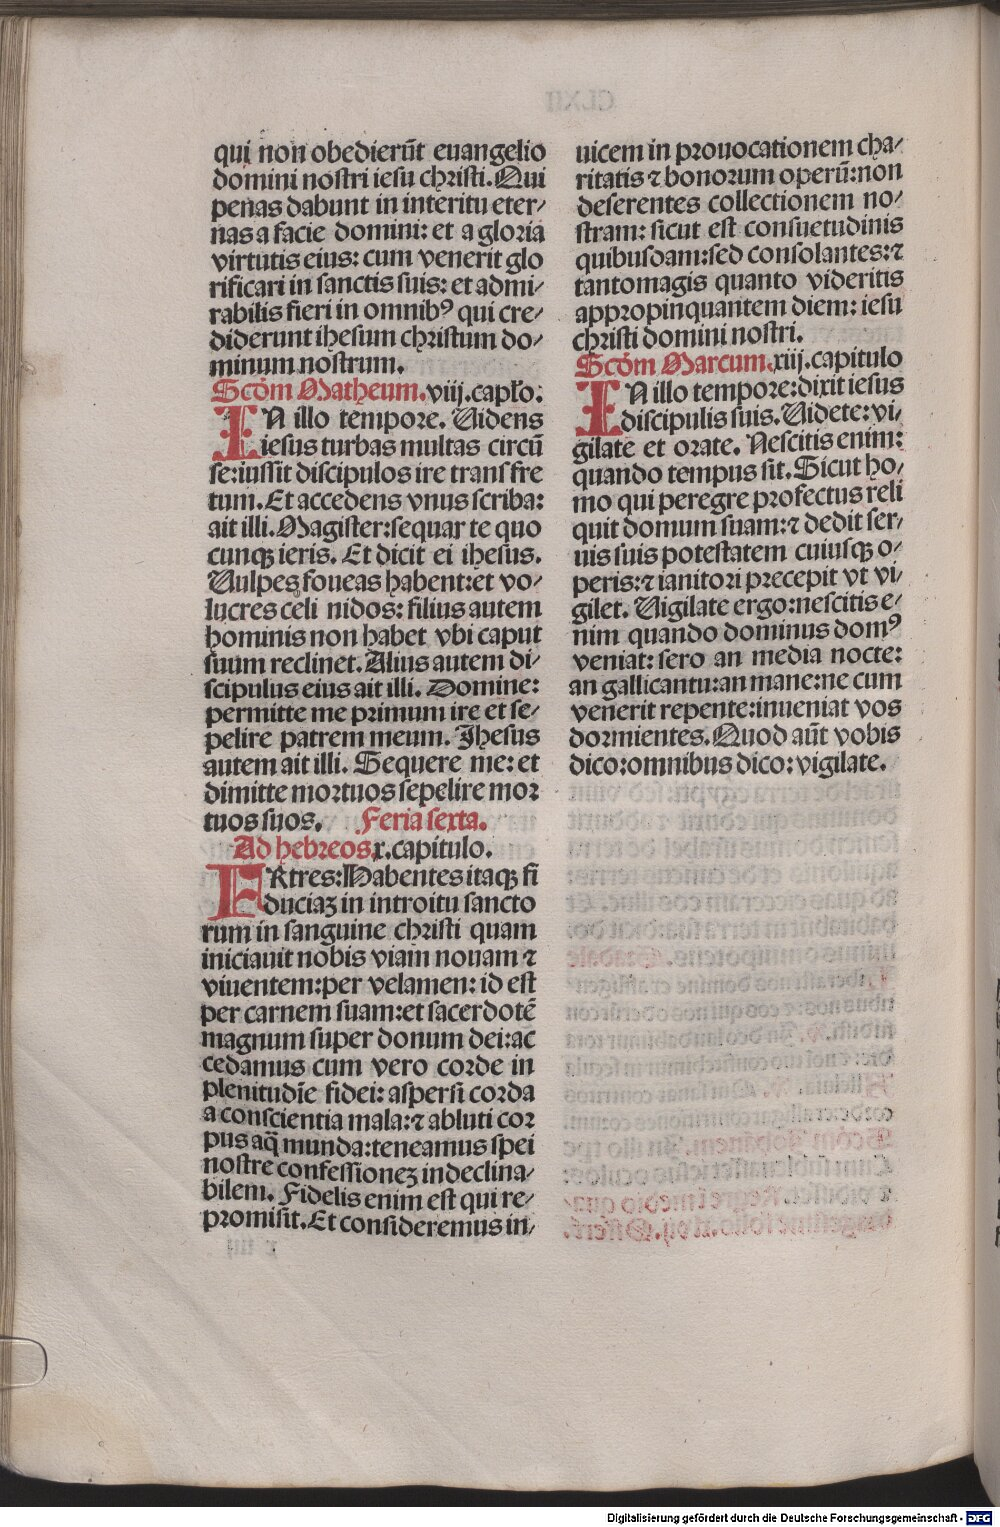 qui non obedierūt euangelio
domini nostri iesu christi. Qui
penas dabunt in interitu eter⸗
nas a facie domini: et a gloria
virtutis eius: cum venerit glo
rificari in sanctis suis: et admi⸗
rabilis fieri in omnibꝰ qui cre⸗
diderunt ihesum christum do⸗
minum nostrum.
Scd̄m Matheum. viij. capło:
IN illo tempore. Videns
iesus turbas multas circū
se: iussit discipulos ire trans fre
tum. Et accedens vnus scriba:
ait illi. Magister: sequar te quo
cunqꝫ ieris. Et dicit ei ihesus.
Vulpes foueas habent: et vo⸗
lucres celi nidos: filius autem
hominis non habet vbi caput
suum reclinet. Alius autem di⸗
scipulus eius ait illi. Domine:
permitte me primum ire et se⸗
pelire patrem meum. Ihesus
autem ait illi. Sequere me: et
dimitte mortuos sepelire mor
tuos suos. Feria sexta.
Ad hebreos x. capitulo.
FRtres: Habentes itaqꝫ fi
duciaꝫ in introitu sancto
rum in sanguine christi quam
iniciauit nobis viam nouam ⁊
viuentem: per velamen: id est
per carnem suam: et sacerdotē
magnum super domum dei: ac
cedamus cum vero corde in
plenitudīe fidei: aspersi corda
a conscientia mala: ⁊ abluti cor
pus aq̄ munda: teneamus spei
nostre confessioneꝫ indeclina⸗
bilem. Fidelis enim est qui re⸗
promisit. Et consideremus in⸗
uicem in prouocationem cha⸗
ritatis ⁊ bonorum operū: non
deserentes collectionem no⸗
stram: sicut est consuetudinis
quibusdam: sed consolantes: ⁊
tantomagis quanto videritis
appropinquantem diem: iesu
christi domini nostri.
Scd̄m Marcum. xiij. capitulo
IN illo tempore: dixit iesus
discipulis suis. Videte: vi⸗
gilate et orate. Nescitis enim:
quando tempus sit. Sicut ho⸗
mo qui peregre profectus reli
quit domum suam: ⁊ dedit ser⸗
uis suis potestatem cuiusqꝫ o⸗
peris: ⁊ ianitori precepit vt vi⸗
gilet. Vigilate ergo: nescitis e⸗
nim quando dominus domꝰ
veniat: sero an media nocte:
an gallicantu: an mane: ne cum
venerit repente: inueniat vos
dormientes. Quod aūt vobis
dico: omnibus dico: vigilate.
Digitalisierung gefördert durch die Deutsche Forschungsgemeinschaft - DFG